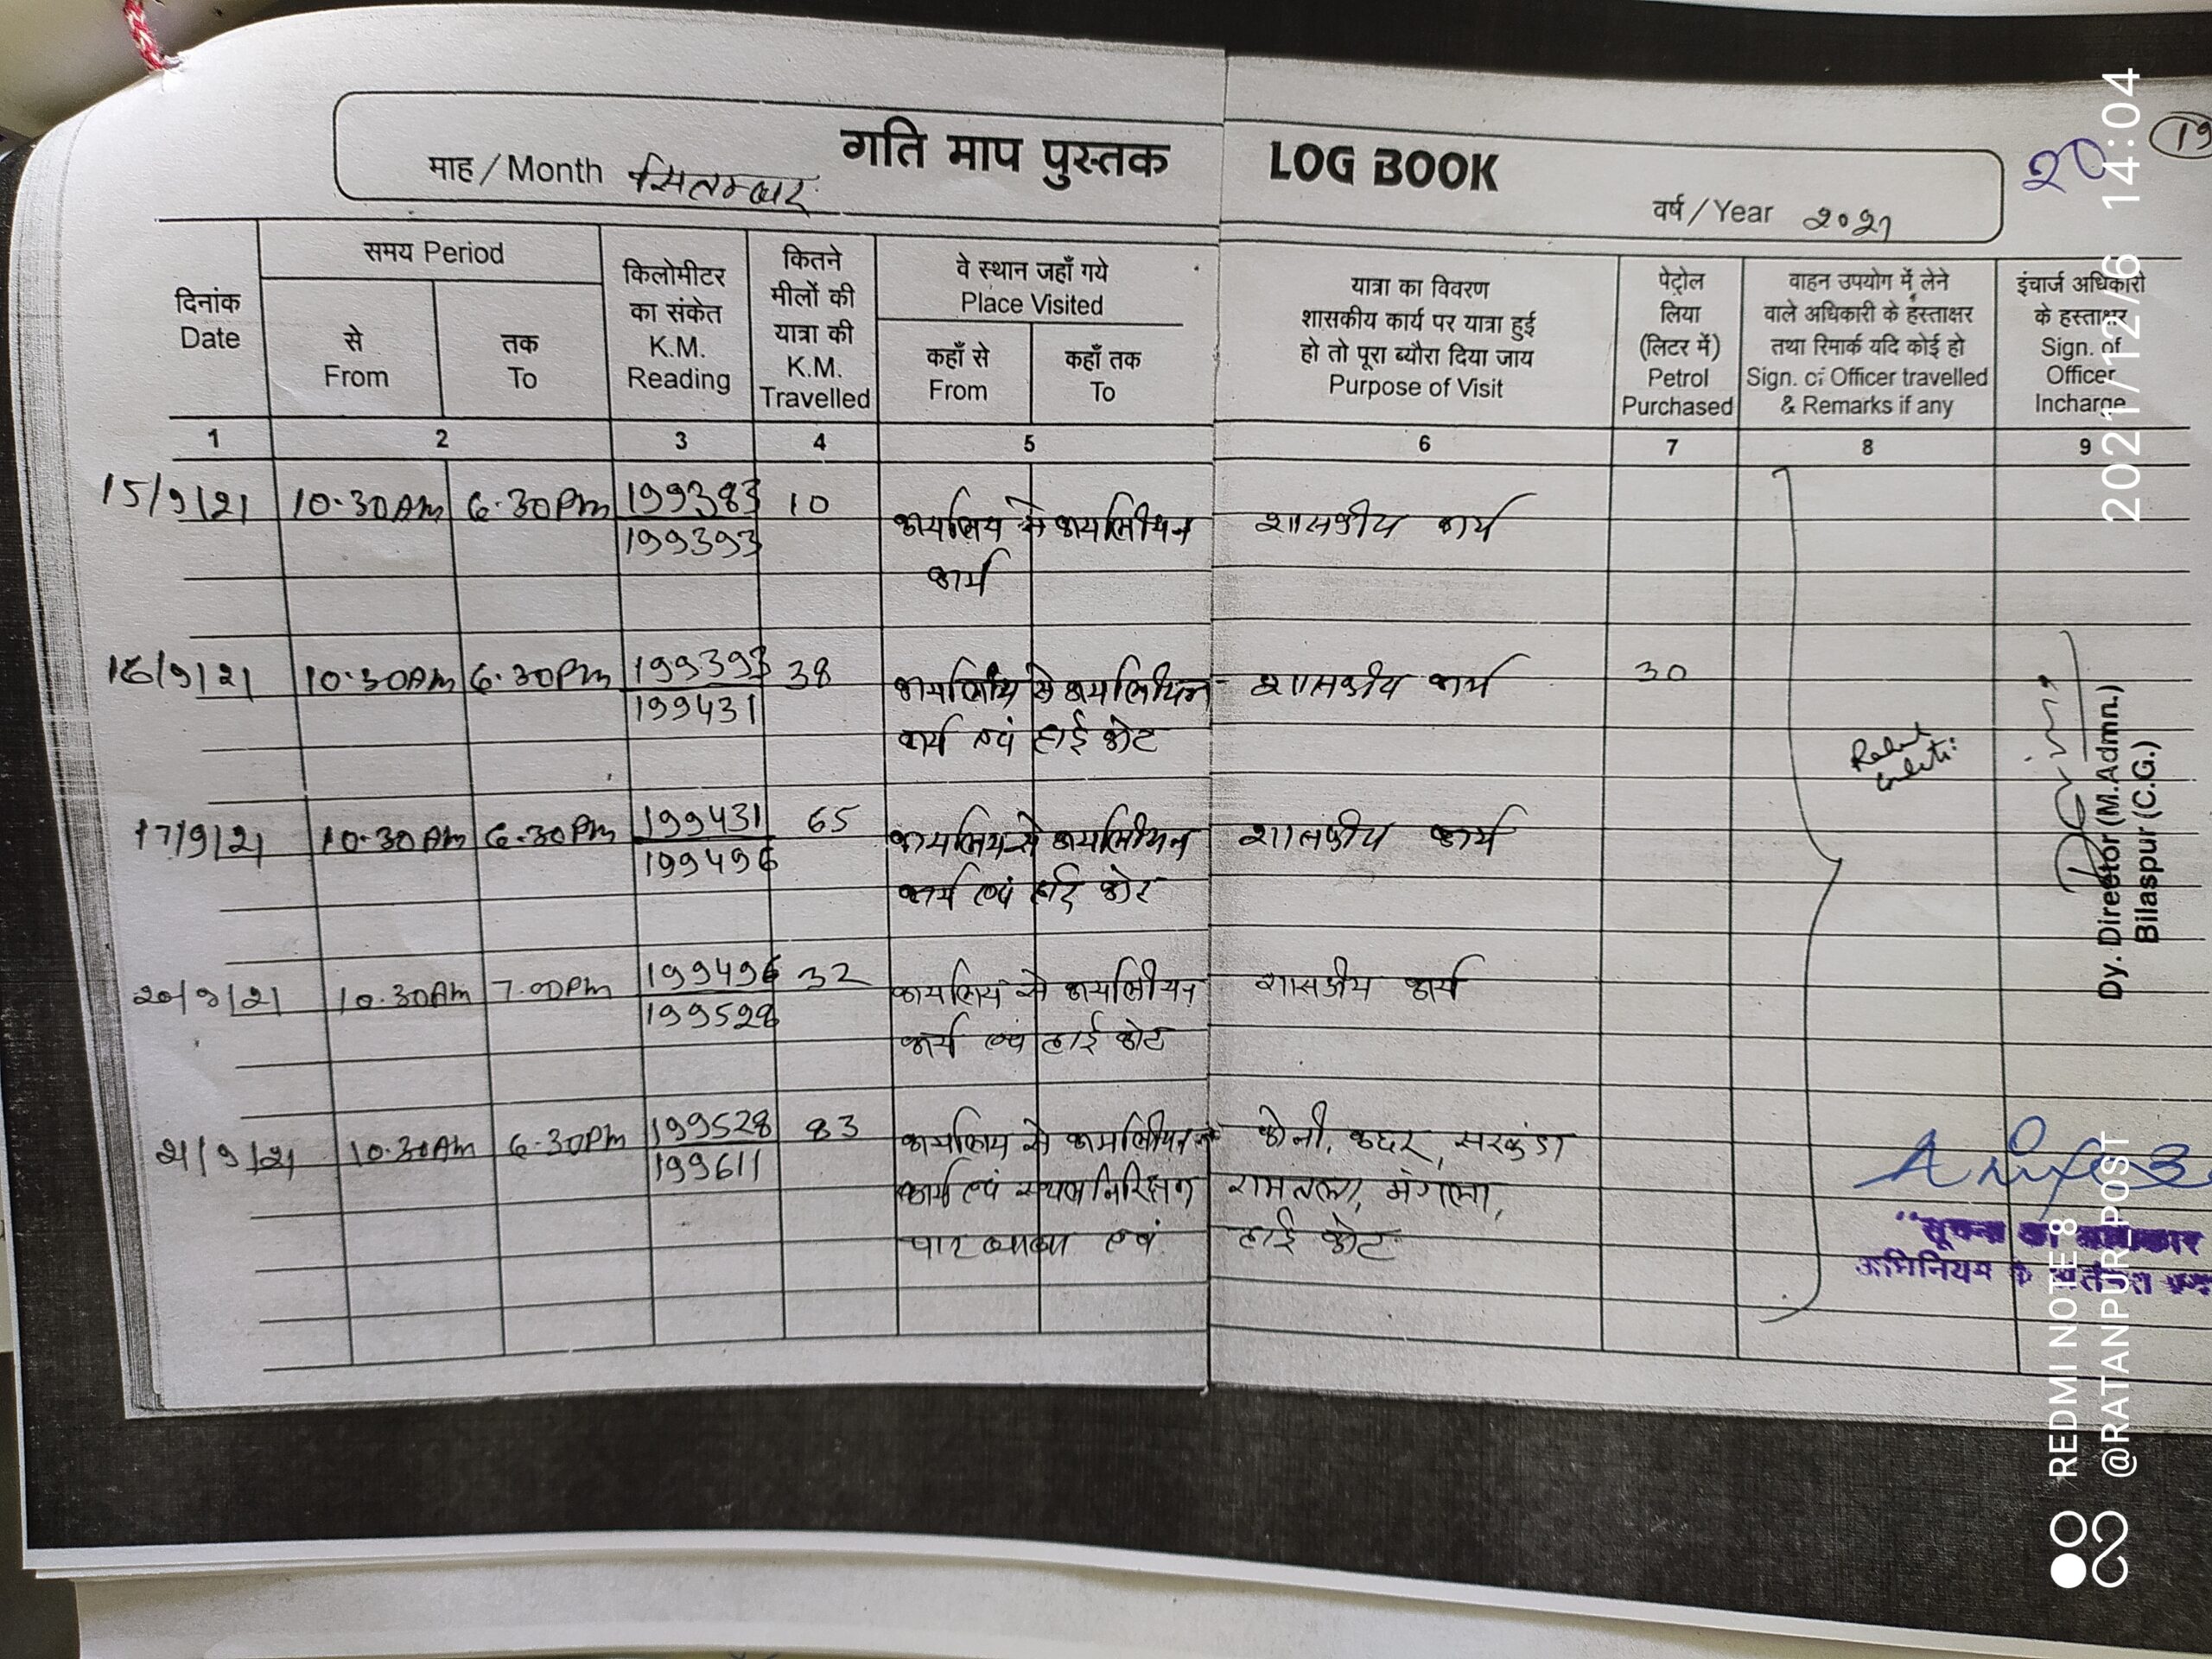 गति माप पुस्तक LOG BOOK
माह / Month सितम्बर
वर्ष / Year २०२१
२०
19
दिनांक Date
समय Period
से From
तक To
किलोमीटर का संकेत K.M. Reading
कितने मीलों की यात्रा की K.M. Travelled
वे स्थान जहाँ गये Place Visited
कहाँ से From
कहाँ तक To
यात्रा का विवरण शासकीय कार्य पर यात्रा हुई हो तो पूरा ब्यौरा दिया जाय Purpose of Visit
पेट्रोल लिया (लिटर में) Petrol Purchased
वाहन उपयोग में लेने वाले अधिकारी के हस्ताक्षर तथा रिमार्क यदि कोई हो Sign. of Officer travelled & Remarks if any
इंचार्ज अधिकारी के हस्ताक्षर Sign. of Officer Incharge
1 2 3 4 5 6 7 8 9
15/9/21 10.30AM 6.30PM 199383 10 कार्यालय से कार्यालीयन शासकीय कार्य
199393
कार्य
16/9/21 10.30AM 6.30PM 199393 38 कार्यालय से कार्यालीयन शासकीय कार्य 30
199431
कार्य एवं हाई कोट
17/9/21 10.30AM 6.30PM 199431 65 कार्यालय से कार्यालीयन शासकीय कार्य
199496
कार्य एवं हाई कोट
20/9/21 10.30AM 7.00PM 199496 32 कार्यालय से कार्यालीयन शासकीय कार्य
199528
कार्य एवं हाई कोट
21/9/21 10.30AM 6.30PM 199528 83 कार्यालय से कार्यालीयन कोनी, कछार, सरकंडा
199611
कार्य एवं स्थल निरिक्षण रामतला, मंगला,
एवं हाई कोट
Dy. Director (M.Admn.)
Bilaspur (C.G.)
"सूचना का अधिकार
अधिनियम के अंतर्गत
2021/12/6 14:04
REDMI NOTE 8
@RATANPUR_POST